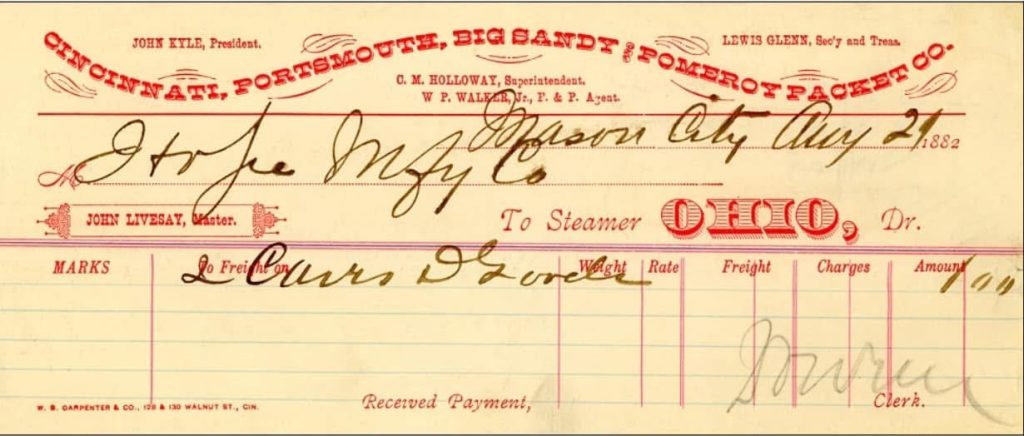 JOHN KYLE, President.
LEWIS GLENN, Sec'y and Treas.
CINCINNATI, PORTSMOUTH, BIG SANDY AND POMEROY PACKET CO.
C. M. HOLLOWAY, Superintendent.
W P. WALKER, Jr., F. & P. Agent.
Mason City Aug 29 1882
M Mfg Co
JOHN LIVESAY, Master.
To Steamer OHIO, Dr.
MARKS To Freight on Weight Rate Freight Charges Amount
2 D Goods 1 00
W. B. CARPENTER & CO., 128 & 130 WALNUT ST., CIN.
Received Payment,
Clerk.